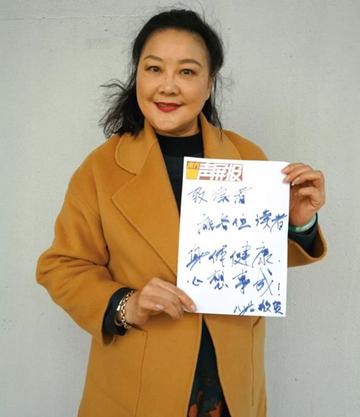 声屏报
致读者
祝各位读者
身体健康.
心想事成!